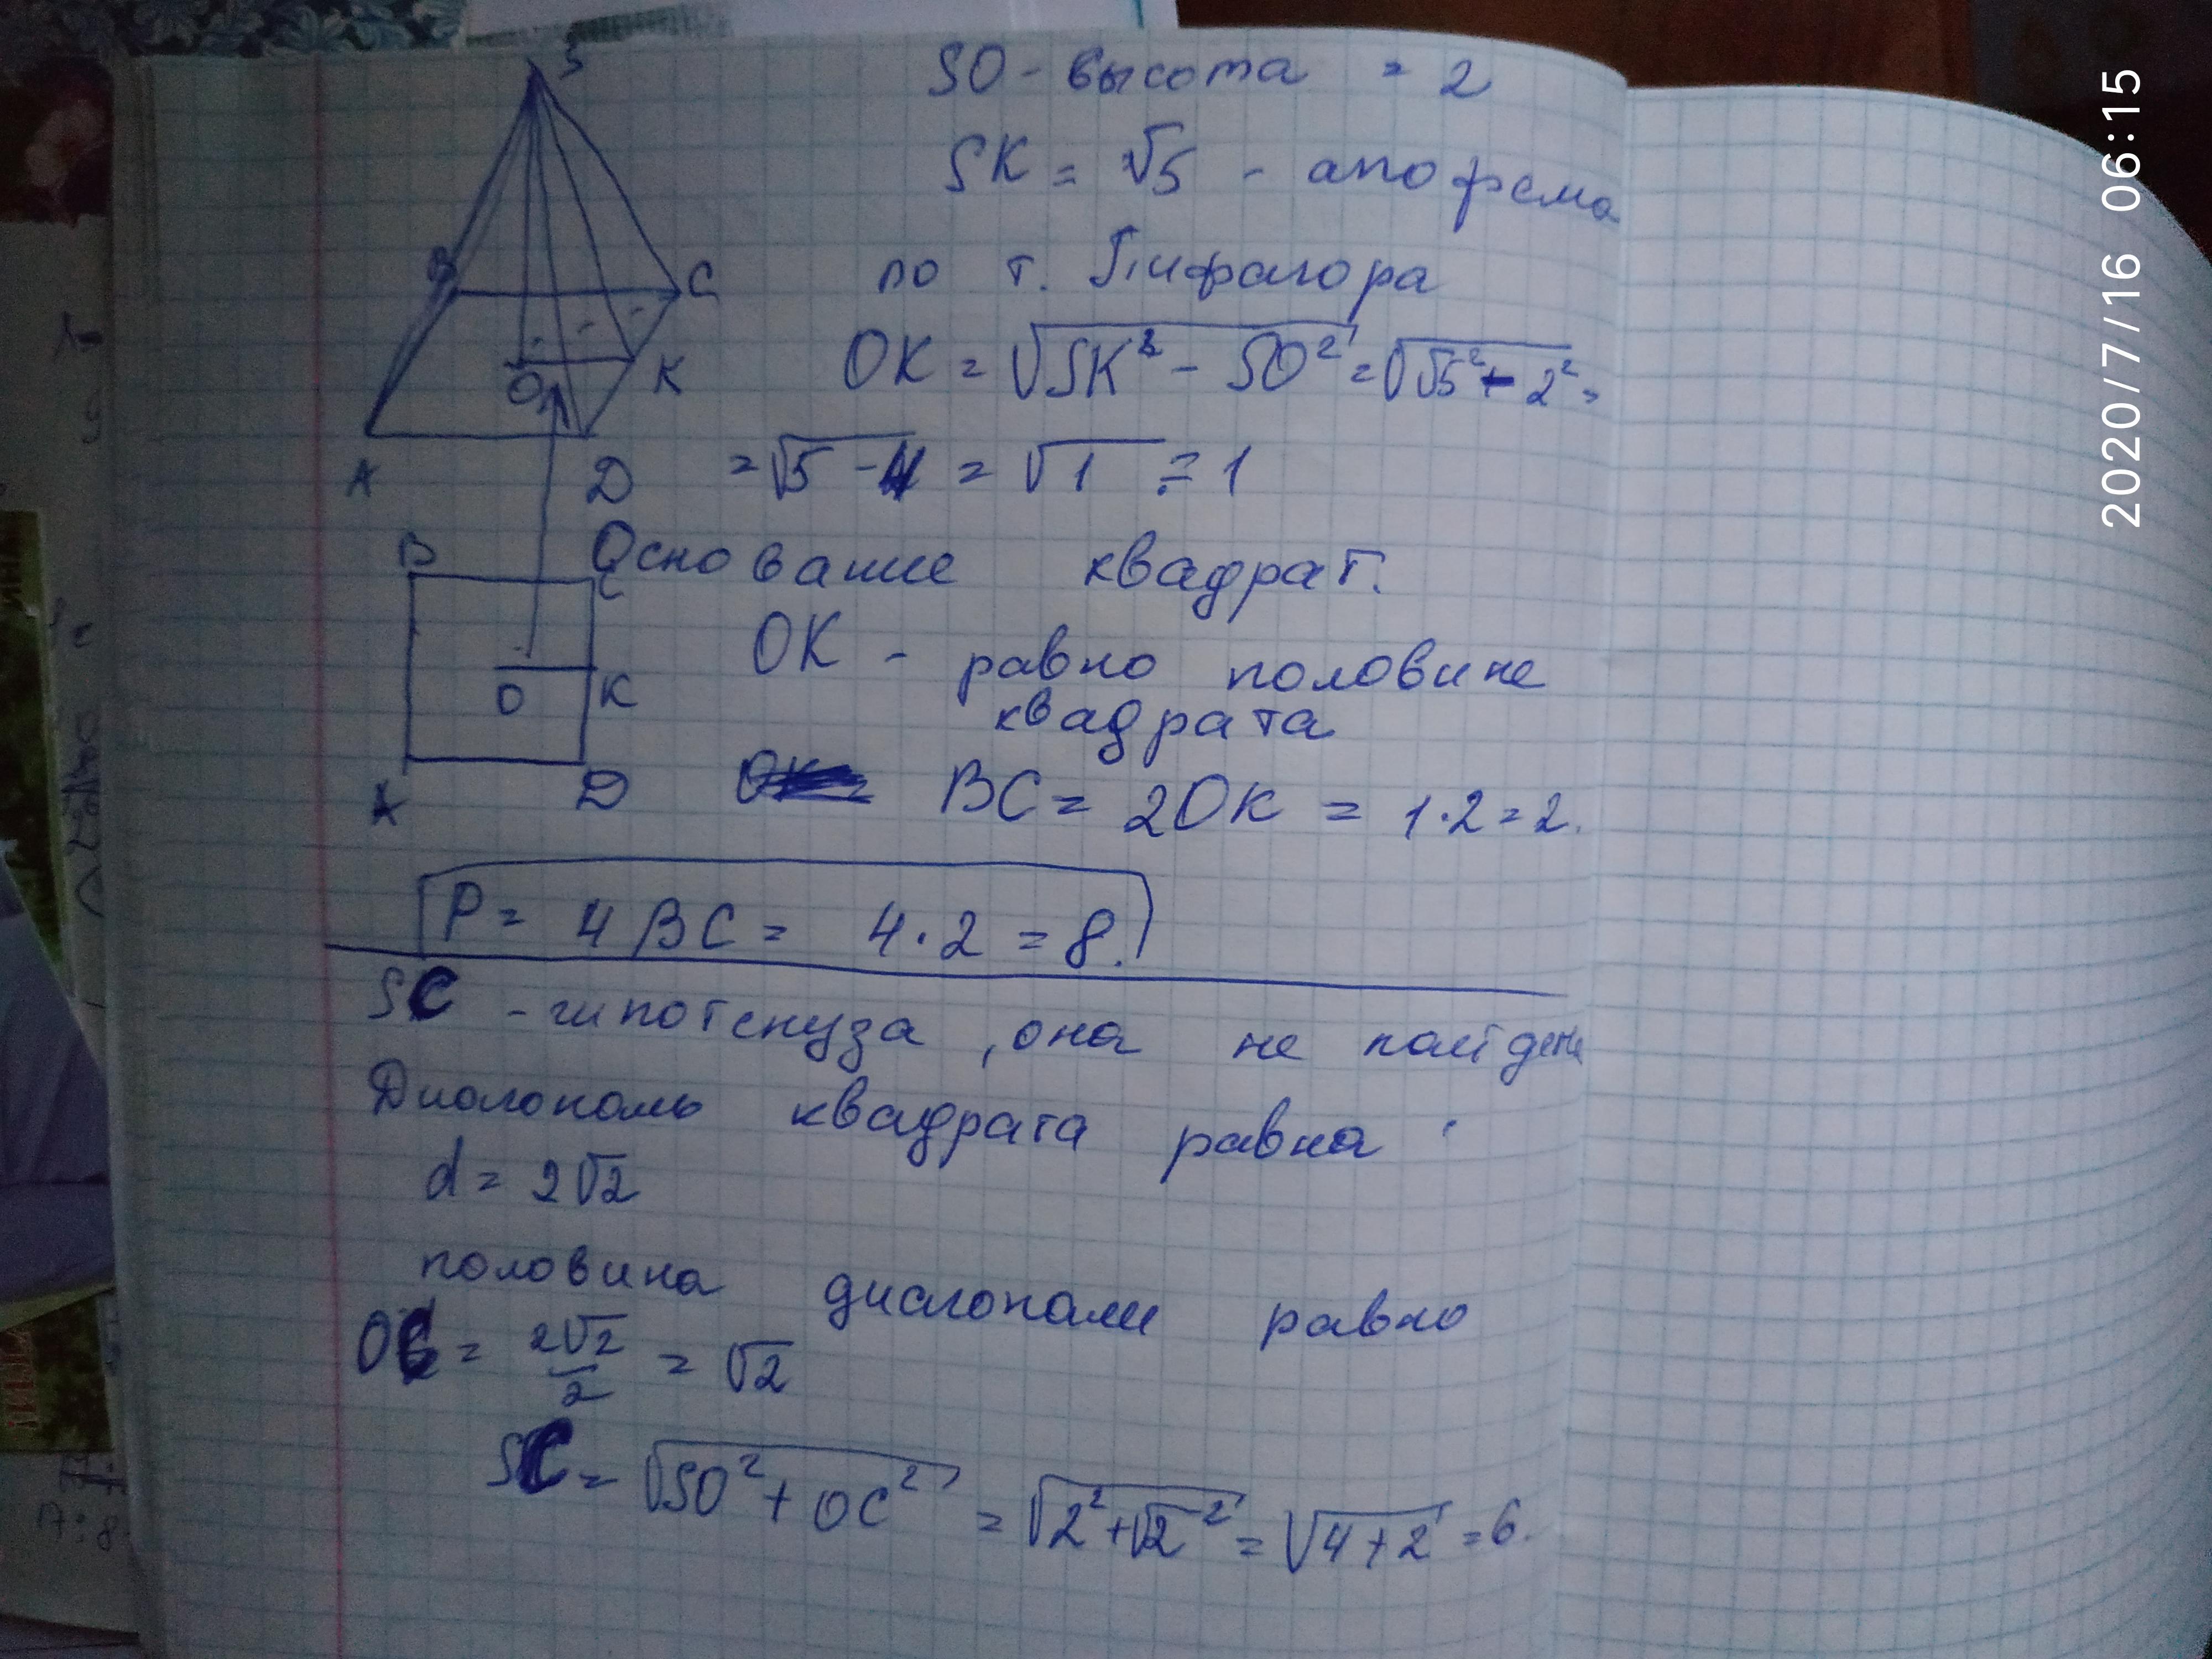 S
B
C
O
K
A
D
SO - высота = 2
SK = √5 - апофема
по т. Пифагора
OK = √SK² - SO² = √√5² - 2² =
= √5 - 4 = √1 = 1
B
C
O
K
A
D
Основание квадрат.
OK - равно половине
квадрата
BC = 2OK = 1·2 = 2.
P = 4BC = 4·2 = 8.
SC - гипотенуза, она не найдена
Диагональ квадрата равна
d = 2√2
половина диагонали равно
OC = 2√2/2 = √2
SC = √SO² + OC² = √2² + √2² = √4 + 2 = 6.
2020/7/16 06:15
17:8